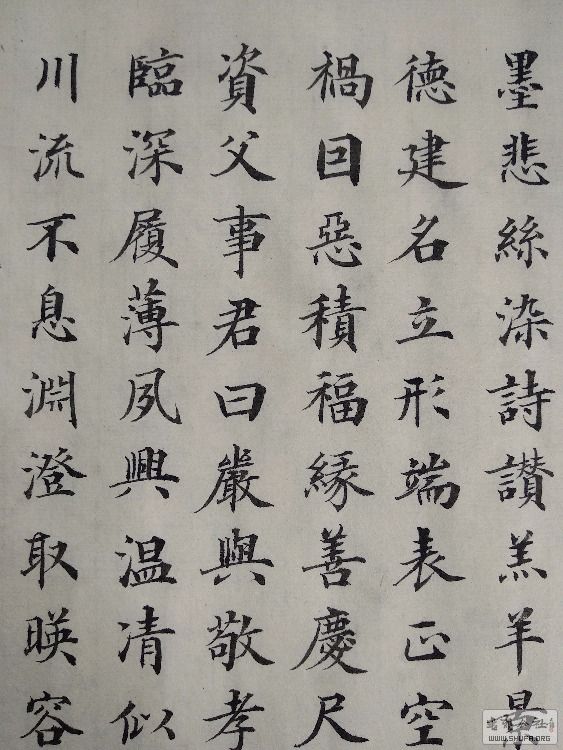 墨悲絲染詩讃羔羊景
德建名立形端表正空
禍因惡積福縁善慶尺
資父事君曰嚴與敬孝
臨深履薄夙興温清似
川流不息淵澄取暎容
WWW.SHUFA.ORG